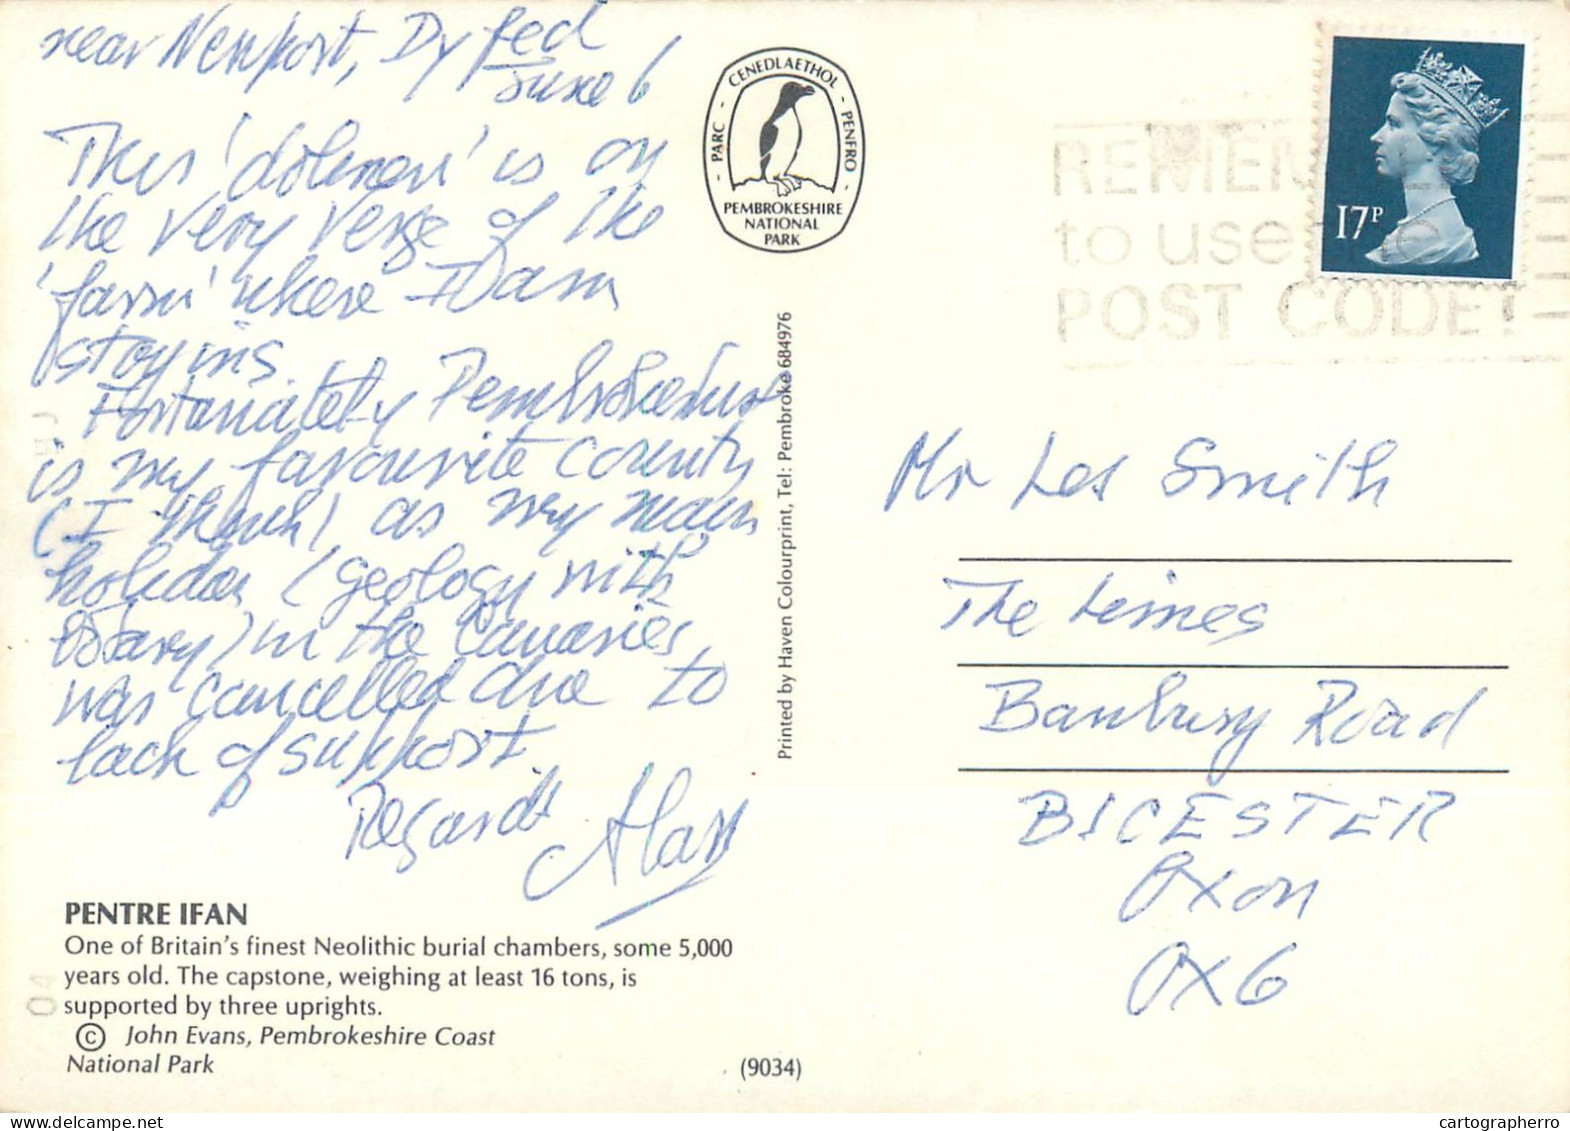 near Newport, Dyfed
June 6
This 'dolmen' is on
the very verge of the
'farm' where I am
staying
Fortunately Pembrokeshire
is my favourite county
(I think) as my main
holiday (geology with
) in the Canaries
was cancelled due to
lack of support
Regards Alan
PENTRE IFAN
One of Britain's finest Neolithic burial chambers, some 5,000
years old. The capstone, weighing at least 16 tons, is
supported by three uprights.
© John Evans, Pembrokeshire Coast
National Park
(9034)
PARC CENEDLAETHOL PENFRO
PEMBROKESHIRE
NATIONAL
PARK
Printed by Haven Colourprint, Tel: Pembroke 684976
17P
REMEM
to use
POST CODE
Mr Les Smith
The Limes
Banbury Road
BICESTER
Oxon
OX6
04
cartographerro